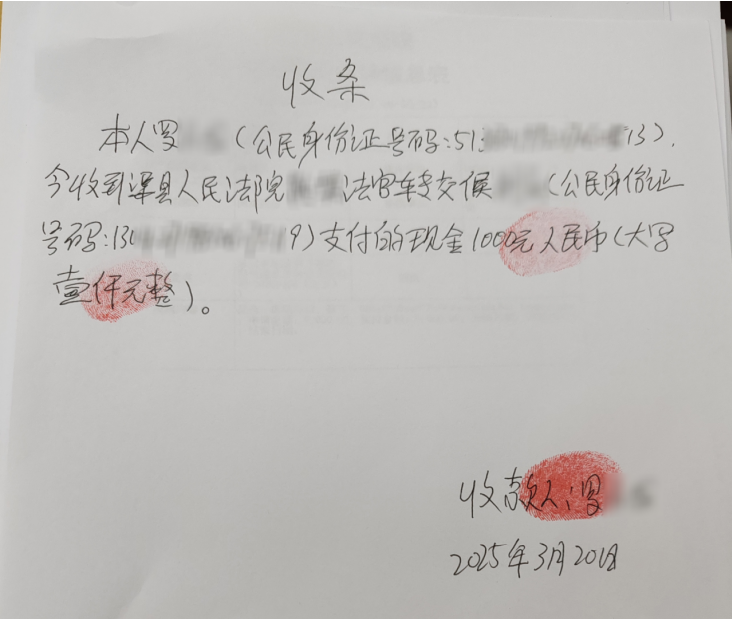 收条
本人罗（公民身份证号码:51313).
今收到渠县人民法院法官转交侯（公民身份证
号码:1309)支付的现金1000元人民币(大写
壹仟元整)。
收款人:罗
2025年3月20日